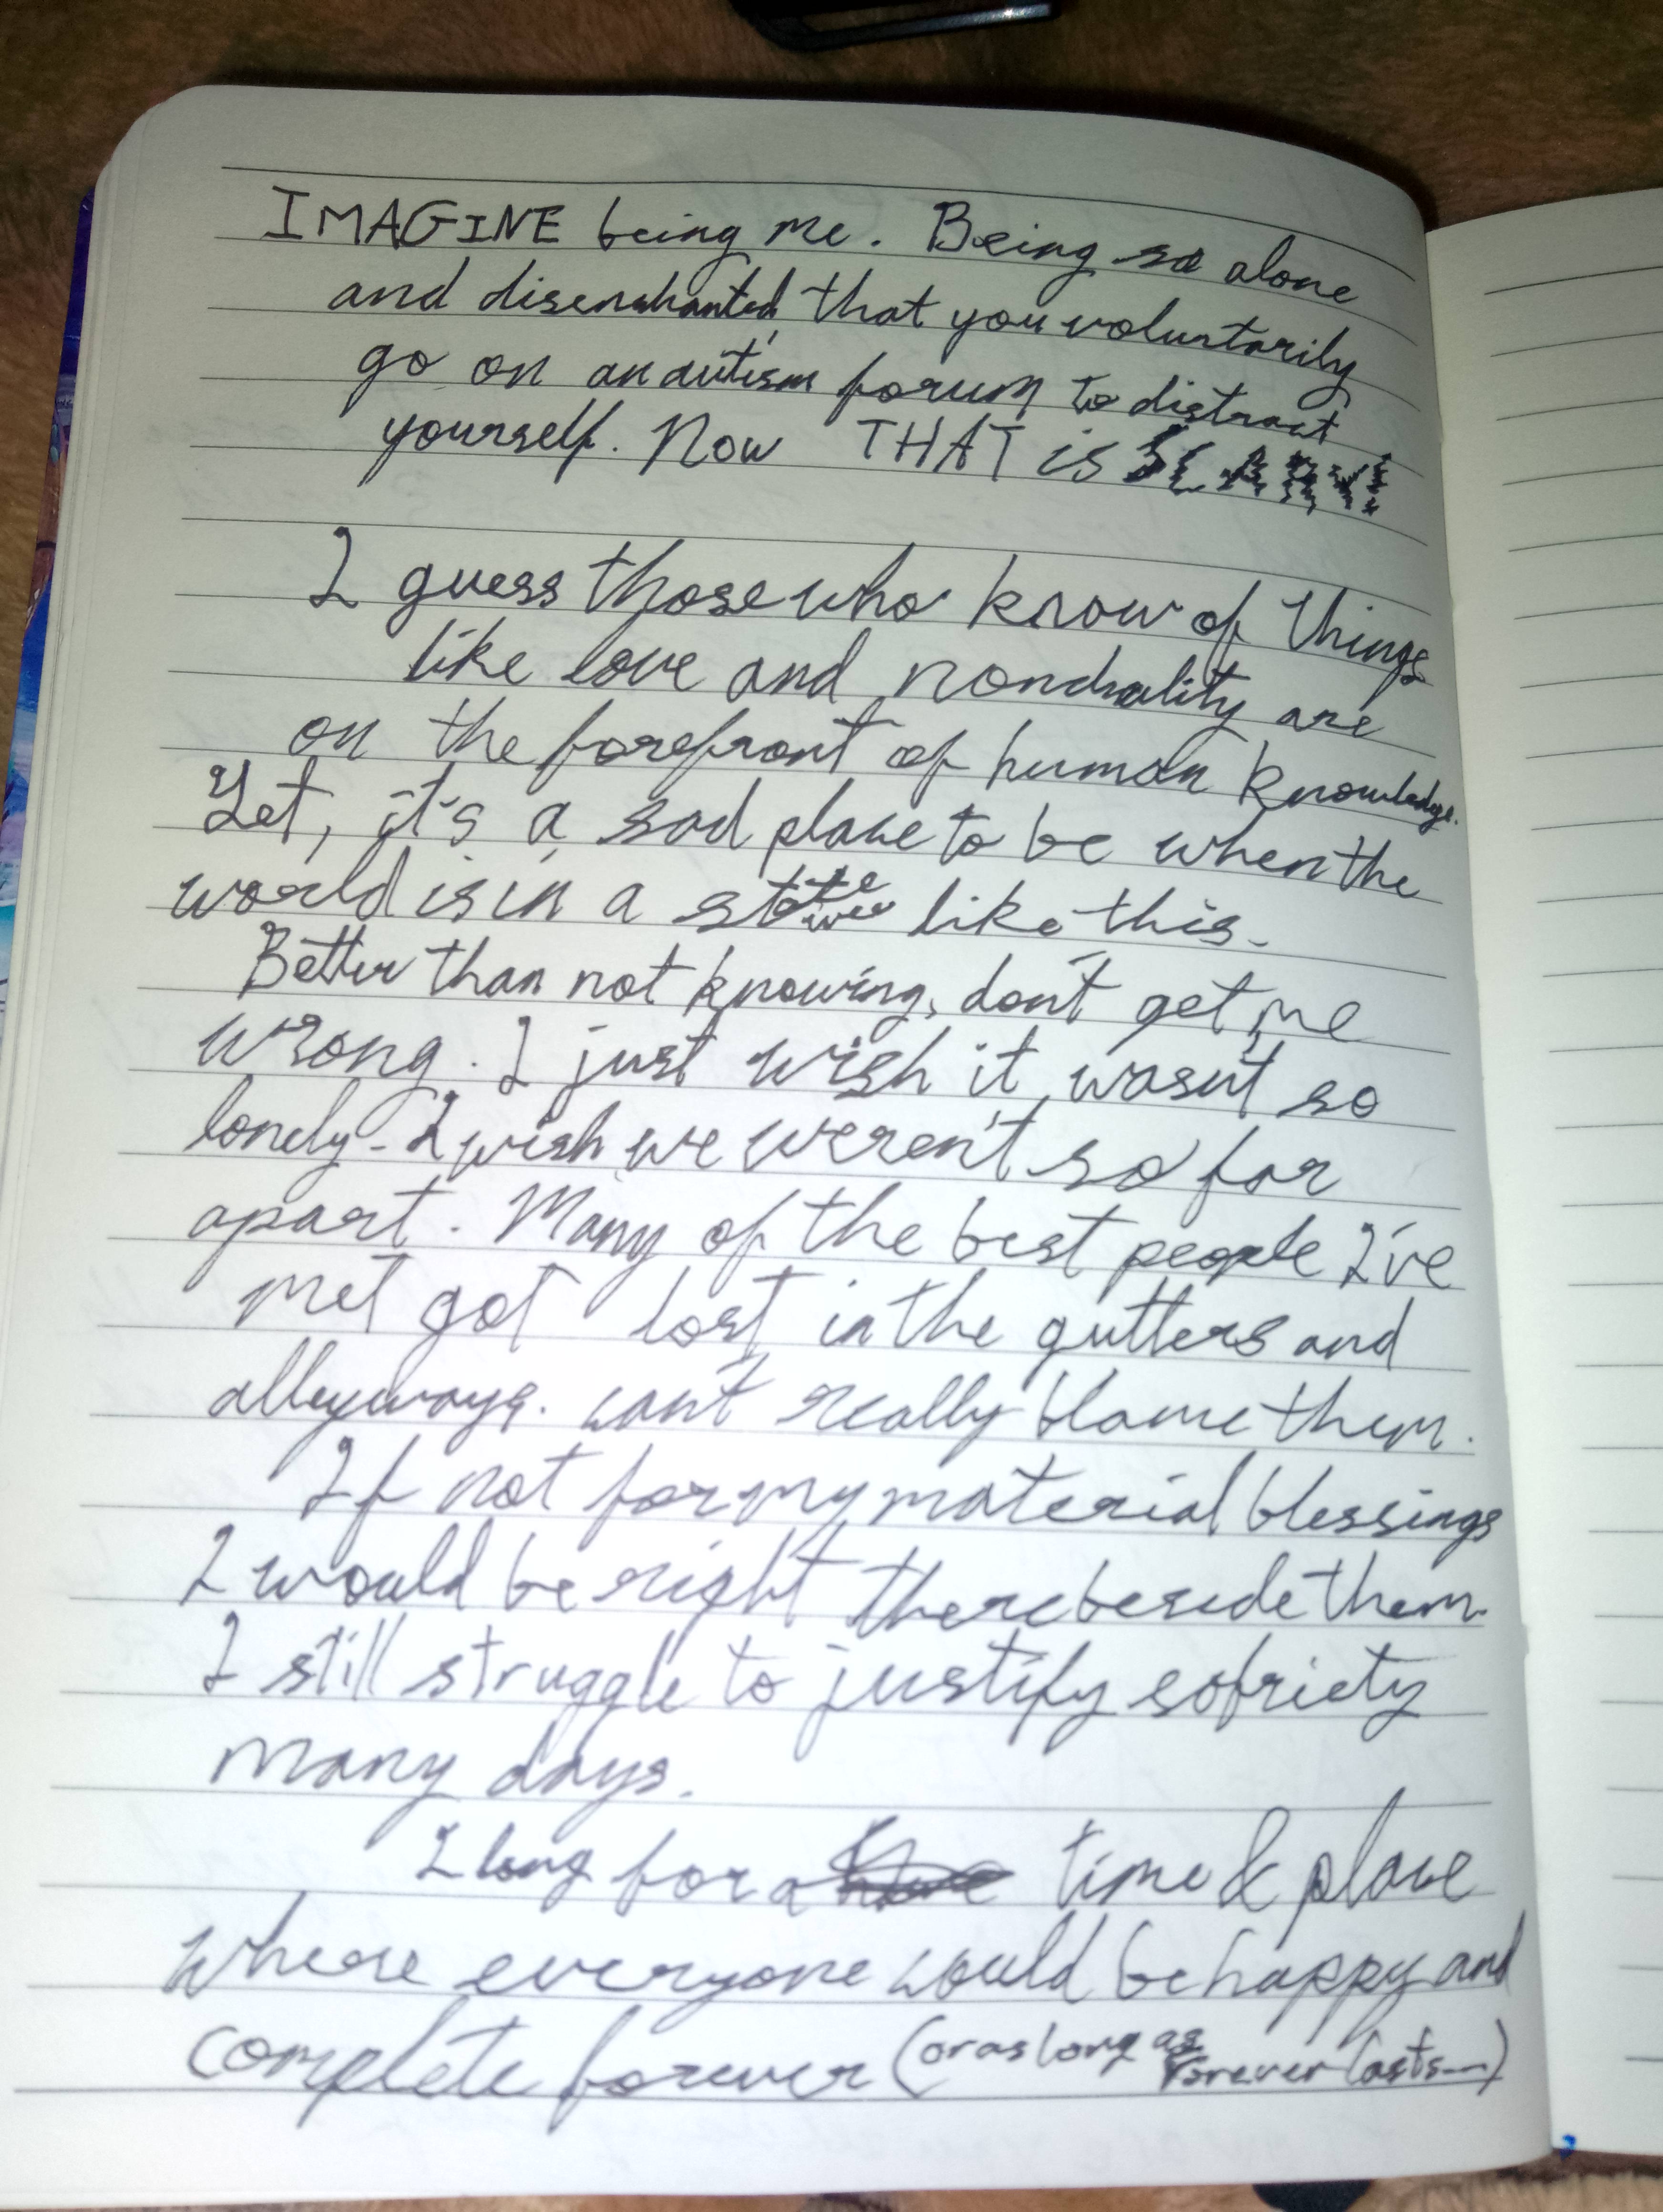 IMAGINE being me. Being so alone
and disenchanted, that you voluntarily
go on an autism forum to distract
yourself. Now THAT is SCARY!
I guess those who know of things
like love and nonduality are
on the forefront of human knowledge.
Yet, it's a sad place to be when the
world is in a state like this.
Better than not knowing, don't get me
wrong. I just wish it wasn't so
lonely - I wish we weren't so far
apart. Many of the best people I've
met got lost in the gutters and
alleyways. can't really blame them.
If not for my material blessings
I would be right there beside them.
I still struggle to justify sobriety
many days.
I long for a time & place
where everyone could be happy and
complete forever (or as long as forever lasts...)